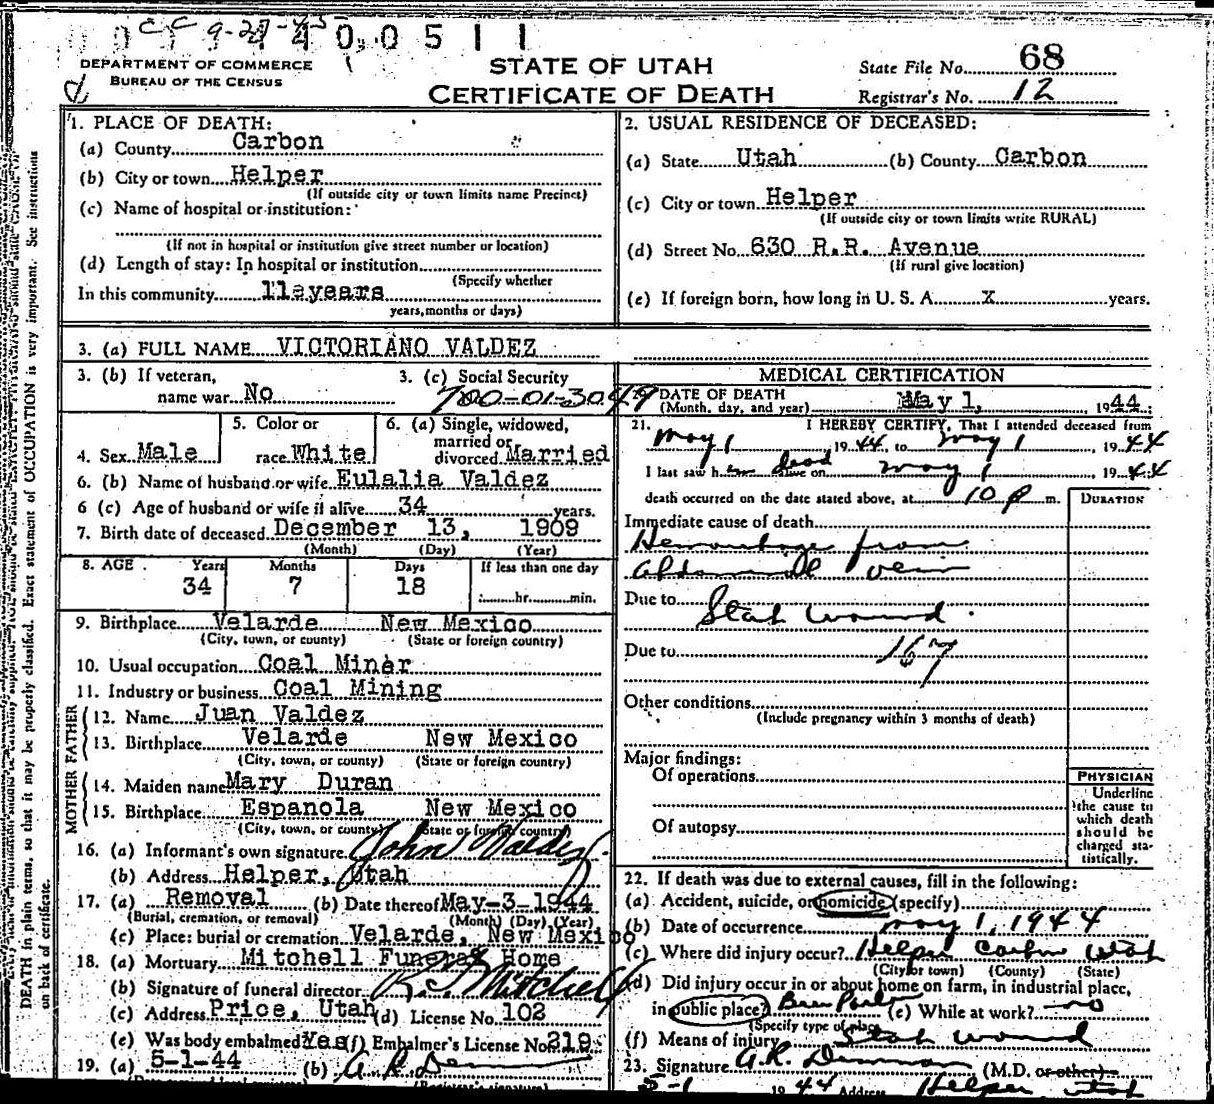 CC 9-27-45
0 0 5 1 1
DEPARTMENT OF COMMERCE
BUREAU OF THE CENSUS
STATE OF UTAH
CERTIFICATE OF DEATH
State File No. 68
Registrar's No. 12
1. PLACE OF DEATH:
(a) County Carbon
(b) City or town Helper
(If outside city or town limits name Precinct)
(c) Name of hospital or institution:
(If not in hospital or institution give street number or location)
(d) Length of stay: In hospital or institution
(Specify whether
In this community 11 years
years, months or days)
2. USUAL RESIDENCE OF DECEASED:
(a) State Utah (b) County Carbon
(c) City or town Helper
(If outside city or town limits write RURAL)
(d) Street No. 630 R.R. Avenue
(If rural give location)
(e) If foreign born, how long in U. S. A. X years.
3. (a) FULL NAME VICTORIANO VALDEZ
3. (b) If veteran, name war No
3. (c) Social Security
700-01-3049
4. Sex Male
5. Color or race White
6. (a) Single, widowed, married or divorced Married
6. (b) Name of husband or wife Eulalia Valdez
6 (c) Age of husband or wife if alive 34 years.
7. Birth date of deceased December 13, 1909
(Month) (Day) (Year)
8. AGE Years Months Days If less than one day
34 7 18 hr. min.
9. Birthplace Velarde New Mexico
(City, town, or county) (State or foreign country)
10. Usual occupation Coal Miner
11. Industry or business Coal Mining
FATHER
12. Name Juan Valdez
13. Birthplace Velarde New Mexico
(City, town, or county) (State or foreign country)
MOTHER
14. Maiden name Mary Duran
15. Birthplace Espanola New Mexico
(City, town, or county) (State or foreign country)
16. (a) Informant's own signature John Valdez
(b) Address Helper, Utah
17. (a) Removal (b) Date thereof May-3-1944
(Burial, cremation, or removal) (Month) (Day) (Year)
(c) Place: burial or cremation Velarde, New Mexico
18. (a) Mortuary Mitchell Funeral Home
(b) Signature of funeral director R. J. Mitchell
(c) Address Price, Utah (d) License No. 102
(e) Was body embalmed Yes (f) Embalmer's License No. 219
19. (a) 5-1-44 (b) A. R. Demman
MEDICAL CERTIFICATION
20. DATE OF DEATH
(Month, day, and year) May 1, 1944
21. I HEREBY CERTIFY, That I attended deceased from
May 1 1944, to May 1, 1944
I last saw h im dead alive on May 1 1944
death occurred on the date stated above, at 10 p m.
DURATION
Immediate cause of death
Hemorrhage from
abdominal vein
Due to Stab wound
Due to 167
Other conditions
(Include pregnancy within 3 months of death)
Major findings:
Of operations
Of autopsy
PHYSICIAN
Underline the cause to which death should be charged statistically.
22. If death was due to external causes, fill in the following:
(a) Accident, suicide, or homicide (specify)
(b) Date of occurrence May 1, 1944
(c) Where did injury occur? Helper Carbon Utah
(City or town) (County) (State)
(d) Did injury occur in or about home on farm, in industrial place,
in public place? Beer Parlor (e) While at work? no
(Specify type of place)
(f) Means of injury Stab wound
23. Signature A. R. Demman (M.D. or other)
5-1 1944 Address Helper Utah
DEATH in plain terms, so that it may be properly classified. Exact statement of OCCUPATION is very important. See instructions
on back of certificate.